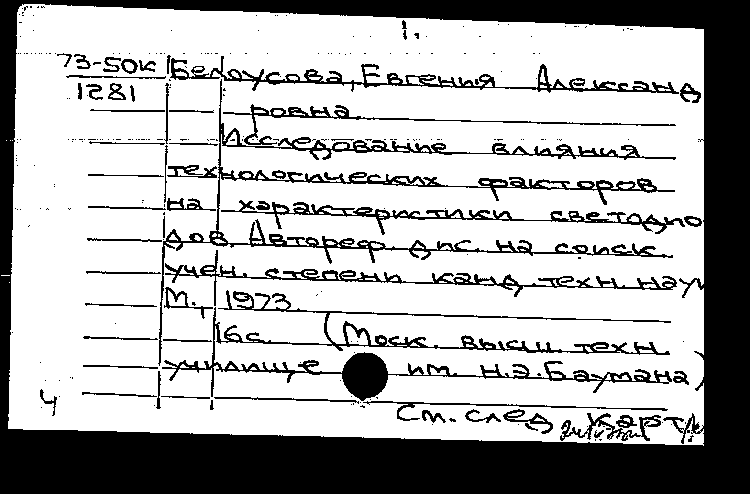 1.
73-50к Белоусова, Евгения Александ
1281
ровна.
Исследование влияния
технологических факторов
на характеристики светодио
дов. Автореф. дис. на соиск.
учен. степени канд. техн. нау
М., 1973.
16с. (Моск. высш. техн.
училище им. Н.Э.Баумана)
4 См. след карт